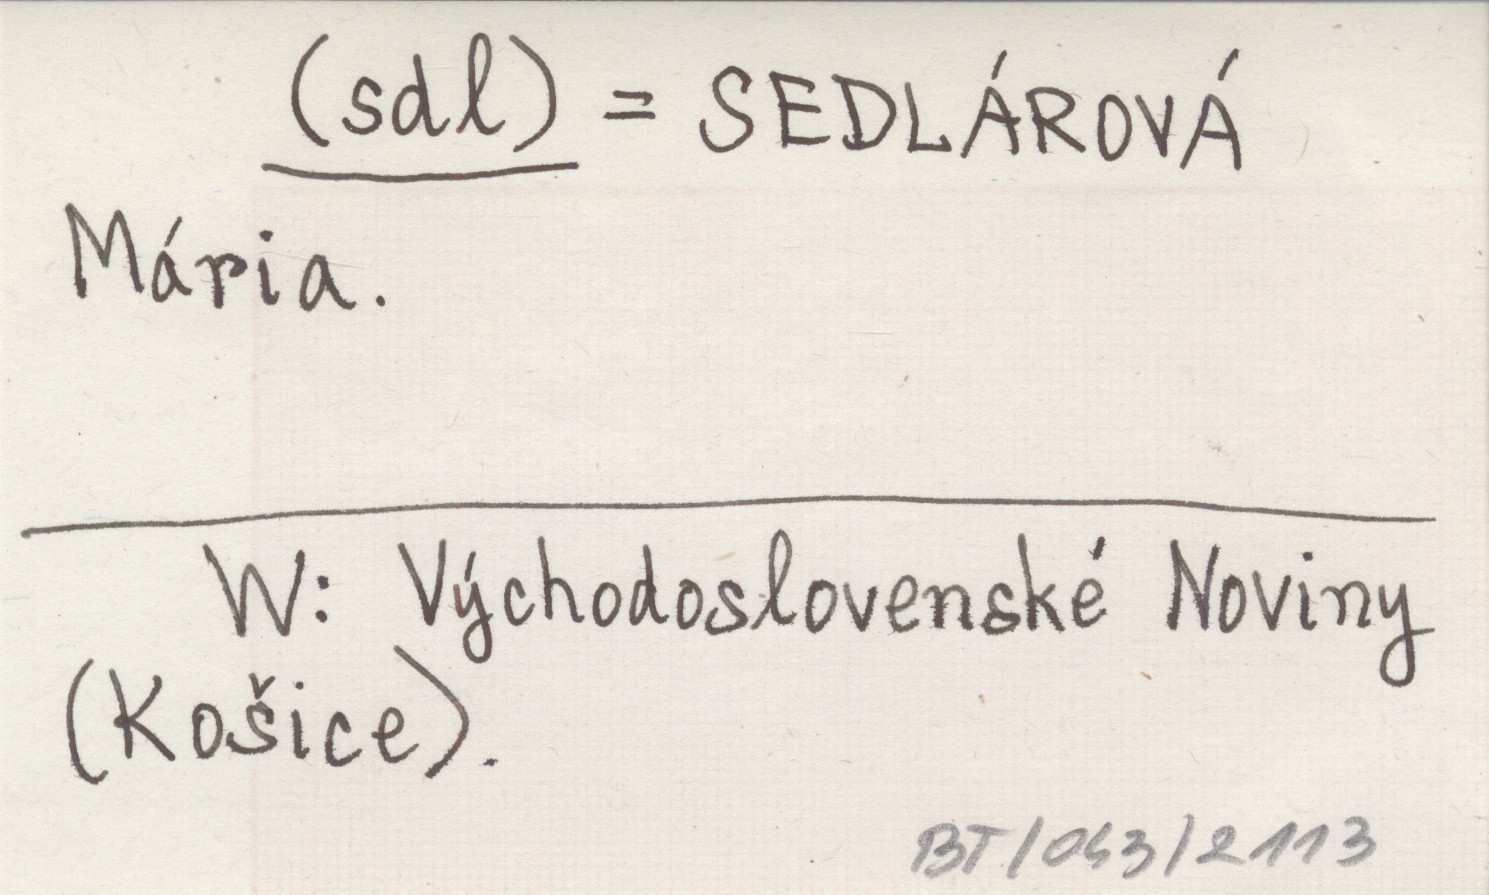 (sdl) = SEDLÁROVÁ
Mária.
W: Východoslovenské Noviny
(Košice).
BT/043/2113